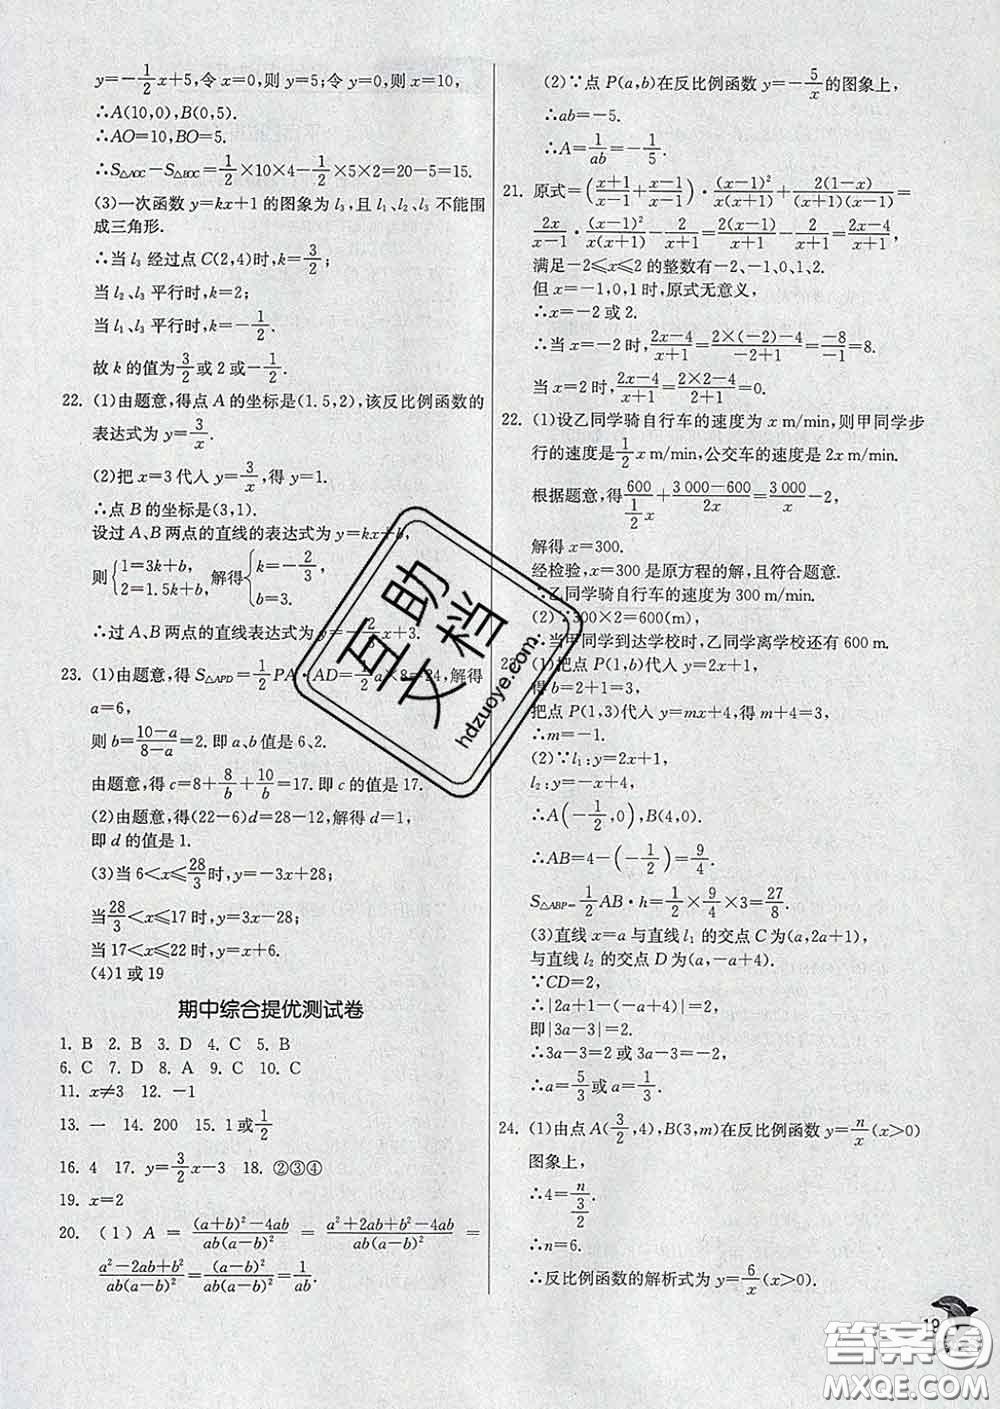 y=-1/2x+5,令 x=0,则 y=5;令 y=0,则 x=10,
∴A(10,0),B(0,5).
∴AO=10,BO=5.
∴S△AOC-S△BOC=1/2×10×4-1/2×5×2=20-5=15.
(3)一次函数 y=kx+1 的图象为 l₃,且 l₁、l₂、l₃ 不能围
成三角形.
∴当 l₃ 经过点 C(2,4)时,k=3/2;
当 l₂、l₃ 平行时,k=2;
当 l₁、l₃ 平行时,k=-1/2.
故 k 的值为3/2或 2 或-1/2.
22. (1)由题意,得点 A 的坐标是(1.5,2),该反比例函数的
表达式为 y=3/x.
(2)把 x=3 代入 y=3/x,得 y=1.
∴点 B 的坐标是(3,1).
设过 A、B 两点的直线的表达式为 y=kx+b,
则{1=3k+b, 2=1.5k+b, 解得{k=-2/3, b=3.
∴过 A、B 两点的直线表达式为 y=-2/3x+3.
23. (1)由题意,得 S△APD=1/2PA·AD=1/2a×8=24,解得
a=6,
则 b=(10-a)/(8-a)=2. 即 a、b 值是 6、2.
由题意,得 c=8+8/b+10/b=17. 即 c 的值是 17.
(2)由题意,得(22-6)d=28-12,解得 d=1,
即 d 的值是 1.
(3)当 6<x≤28/3时,y=-3x+28;
当28/3<x≤17 时,y=3x-28;
当 17<x≤22 时,y=x+6.
(4)1 或 19
期中综合提优测试卷
1. B 2. B 3. D 4. C 5. B
6. C 7. D 8. A 9. C 10. C
11. x≠3 12. -1
13. 一 14. 200 15. 1 或1/2
16. 4 17. y=3/2x-3 18. ②③④
19. x=2
20. (1) A = ((a+b)²-4ab)/(ab(a-b)²) = (a²+2ab+b²-4ab)/(ab(a-b)²) =
(a²-2ab+b²)/(ab(a-b)²)=(a-b)²/(ab(a-b)²)=1/ab.
(2)∵点 P(a,b)在反比例函数 y=-5/x的图象上,
∴ab=-5.
∴A=1/ab=-1/5.
21. 原式=((x+1)/(x-1)+(x-1)/(x-1))·(x-1)²/(x(x+1))+2(1-x)/((x+1)(x-1))=
2x/(x-1)·(x-1)²/(x(x+1))-2/(x+1)=2(x-1)/(x+1)-2/(x+1)=(2x-4)/(x+1),
满足-2≤x≤2 的整数有-2、-1、0、1、2.
但 x=-1,0,1 时,原式无意义,
∴x=-2 或 2.
∴当 x=-2 时,(2x-4)/(x+1)=(2×(-2)-4)/(-2+1)=-8/-1=8.
当 x=2 时,(2x-4)/(x+1)=(2×2-4)/(2+1)=0.
22. (1)设乙同学骑自行车的速度为 x m/min,则甲同学步
行的速度是1/2x m/min,公交车的速度是 2x m/min.
根据题意,得600/(1/2x)+(3 000-600)/2x=3 000/x-2,
解得 x=300.
经检验,x=300 是原方程的解,且符合题意.
∴乙同学骑自行车的速度为 300 m/min.
(2)∵300×2=600(m)
∴当甲同学到达学校时,乙同学离学校还有 600 m.
(1)把点 P(1,b)代入 y=2x+1,
得 b=2+1=3,
把点 P(1,3)代入 y=mx+4,得 m+4=3,
∴m=-1.
(2)∵l₁:y=2x+1,
l₂:y=-x+4,
∴A(-1/2,0),B(4,0).
∴AB=4-(-1/2)=9/4.
S△ABP=1/2AB·h=1/2×9/4×3=27/8.
(3)直线 x=a 与直线 l₁ 的交点 C 为(a,2a+1),
与直线 l₂ 的交点 D 为(a,-a+4).
∵CD=2,
∴|2a+1-(-a+4)|=2.
即|3a-3|=2.
∴3a-3=2 或 3a-3=-2.
∴a=5/3或 a=1/3.
24. (1)由点 A(3/2,4),B(3,m)在反比例函数 y=n/x(x>0)
图象上,
∴4=n/(3/2).
∴n=6.
∴反比例函数的解析式为 y=6/x(x>0).
19
互助
文档
hdzuoye.com
答案圈
MXQE.COM